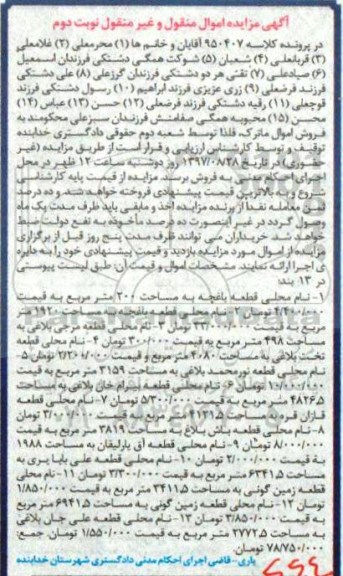 آگهی مزایده اموال منقول و غیر منقول نوبت دوم
در پرونده کلاسه ۹۵۰۴۰۷ آقایان و خانم ها (۱) محرمعلی (۲) غلامعلی
(۳) قربانعلی (۴) شعبان (۵) شوکت همگی دشتکی فرزندان اسمعیل
(۶) صیادعلی (۷) تقتی هر دو دشتکی فرزندان گرزعلی (۸) علی دشتکی
فرزند فرضعلی (۹) زری عزیزی فرزند ابراهیم (۱۰) رسول دشتکی فرزند
قوچعلی (۱۱) رقیه دشتکی فرزند فرضعلی (۱۲) حسن (۱۳) عباس (۱۴)
محسن (۱۵) محبوبه همگی صفامنش فرزندان سبزعلی محکومند به
فروش اموال ماترک، فلذا توسط شعبه دوم حقوقی دادگستری خدابنده
توقیف و توسط کارشناس ارزیابی و قرار است از طریق مزایده (غیر
حضوری) در تاریخ ۱۳۹۷/۰۸/۲۸ روز دوشنبه ساعت ۱۲ ظهر در محل
اجرای احکام مدنی به فروش برسد. مزایده از قیمت پایه کارشناسی
شروع و به بالاترین قیمت پیشنهادی فروخته خواهد شد. و ده درصد
ثمن معامله نقدا از برنده مزایده اخذ و مابقی باید ظرف مدت یک ماه
وصول گردد در غیر اینصورت ده درصد مأخوذه به نفع دولت ضبط
خواهد شد. خریداران می توانند ظرف مدت پنج روز قبل از برگزاری
مزایده از اموال مورد مزایده بازدید و قیمت پیشنهادی خود را به دایره
ی اجرا ارائه نمایند. مشخصات اموال و قیمت آن: طبق لیست پیوستی
در ۱۳ بند:
۱- نام محلی قطعه باغچه به مساحت ۲۰۰ متر مربع به قیمت
۴/۴۰۰/۰۰۰ تومان ۲- نام محلی قطعه باغچه به مساحت ۱۹۲۰ متر
مربع به قیمت ۳۳/۰۰۰/۰۰۰ تومان ۳- نام محلی قطعه مرجی بلاغی به
مساحت ۴۹۸ متر مربع به قیمت ۳۰۰/۰۰۰ تومان ۴- نام محلی قطعه
تخت بلاغی به مساحت ۴۰۸۰ متر مربع و قیمت ۲/۲۶۰/۰۰۰ تومان ۵-
نام محلی قطعه نورمحمد بلاغی به مساحت ۳۱۵۹ متر مربع به قیمت
۱۰/۰۰۰/۰۰۰ تومان ۶- نام محلی قطعه بیرام خان بلاغی به مساحت
۴۸۲۶.۵ متر مربع به قیمت ۵/۳۰۰/۰۰۰ تومان ۷- نام محلی قطعه
قازان قره به مساحت ۴۱۲۱.۵ متر مربع به قیمت ۳/۰۰۰/۰۰۰ تومان
۸- نام محلی قطعه باش بلاغ به مساحت ۳۸۱۹ متر مربع به قیمت
۸/۰۰۰/۰۰۰ تومان ۹- نام محلی قطعه آق یارلیقان به مساحت ۱۹۸۸
به قیمت ۲/۰۰۰/۰۰۰ تومان ۱۰- نام محلی قطعه علی بابا یری به
مساحت ۶۳۴۱.۵ متر مربع به قیمت ۳/۳۰۰/۰۰۰ تومان ۱۱- نام محلی
قطعه زمین گونی به مساحت ۳۴۱۱.۵ متر مربع به قیمت ۱/۸۵۰/۰۰۰
تومان ۱۲- نام محلی قطعه زمین گونی به مساحت ۶۹۴۱.۵ متر مربع
به قیمت ۳/۸۵۰/۰۰۰ تومان ۱۳- نام محلی قطعه علی جان بلاغی
به مساحت ۲۷۷۲.۵ متر مربع به قیمت ۱/۵۵۰/۰۰۰ تومان جمع:
۷۸/۷۵۰/۰۰۰ تومان
یاری- قاضی اجرای احکام مدنی دادگستری شهرستان خدابنده